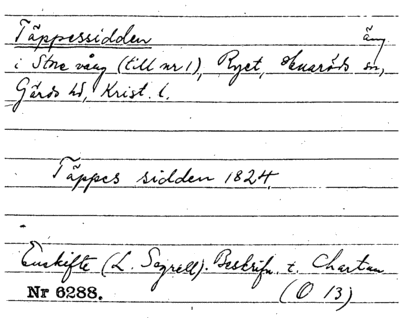 Täppessidden äng
i Store vång (till nr 1), Ryet, Huaröds sn,
Gärds hd, Krist. l.
Täppes sidden 1824.
Enskifte (L. Sagrell). Beskrifn. t. Chartan
Nr 6288. (O 13)